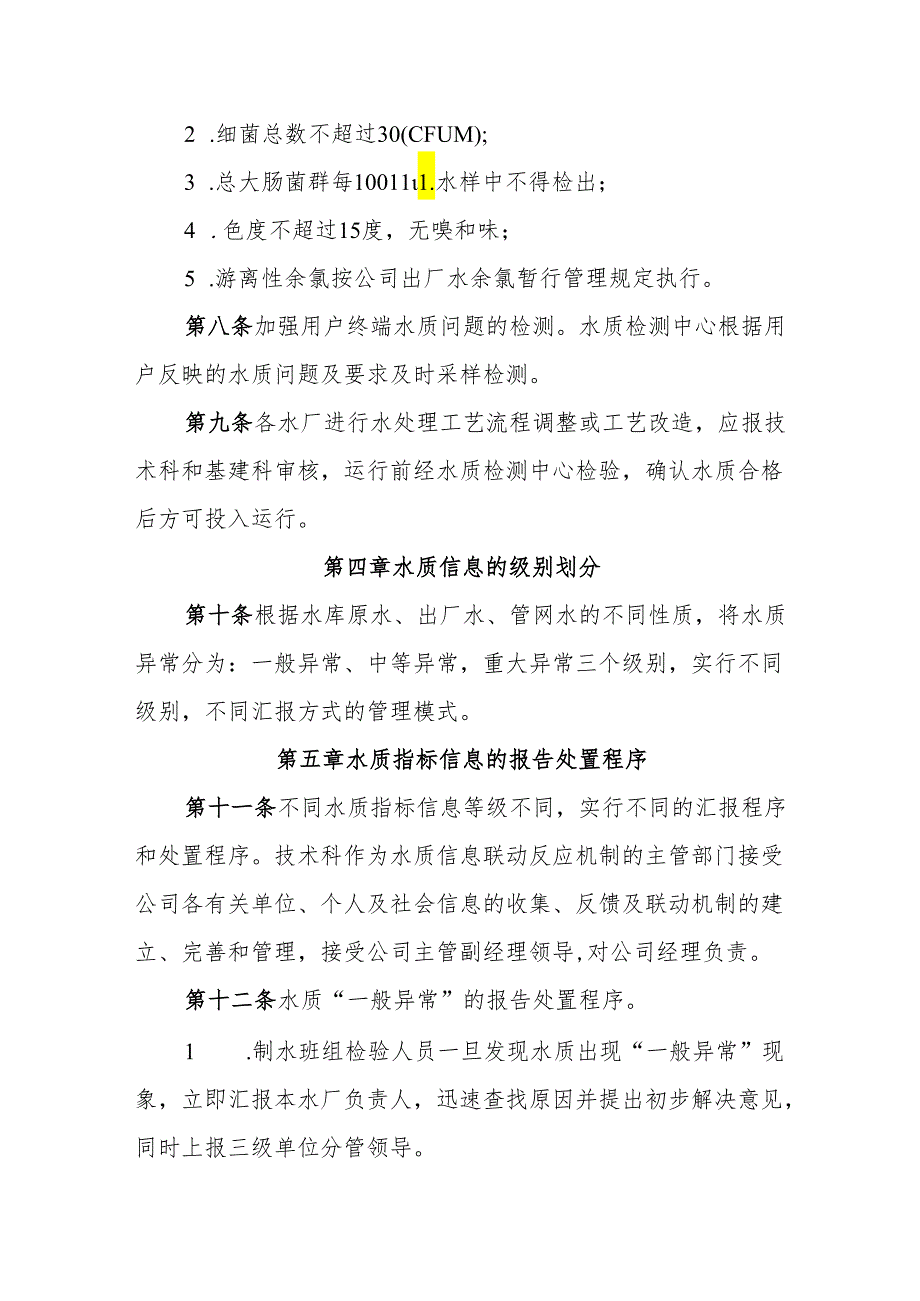 2 .细菌总数不超过30(CFUM);
3 .总大肠菌群每10011ι1.水样中不得检出；
4 . 色度不超过15度，无嗅和味；
5 .游离性余氯按公司出厂水余氯暂行管理规定执行。
第八条加强用户终端水质问题的检测。水质检测中心根据用
户反映的水质问题及要求及时采样检测。
第九条各水厂进行水处理工艺流程调整或工艺改造，应报技
术科和基建科审核，运行前经水质检测中心检验，确认水质合格
后方可投入运行。
第四章水质信息的级别划分
第十条根据水库原水、出厂水、管网水的不同性质，将水质
异常分为：一般异常、中等异常，重大异常三个级别，实行不同
级别，不同汇报方式的管理模式。
第五章水质指标信息的报告处置程序
第十一条不同水质指标信息等级不同，实行不同的汇报程序
和处置程序。技术科作为水质信息联动反应机制的主管部门接受
公司各有关单位、个人及社会信息的收集、反馈及联动机制的建
立、完善和管理，接受公司主管副经理领导,对公司经理负责。
第十二条水质“一般异常”的报告处置程序。
1 .制水班组检验人员一旦发现水质出现“一般异常”现
象，立即汇报本水厂负责人，迅速查找原因并提出初步解决意见，
同时上报三级单位分管领导。